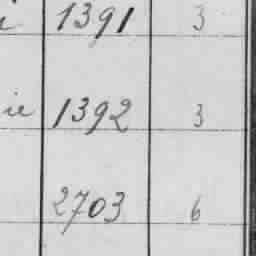 1391 3
ie 1392 3
2703 6